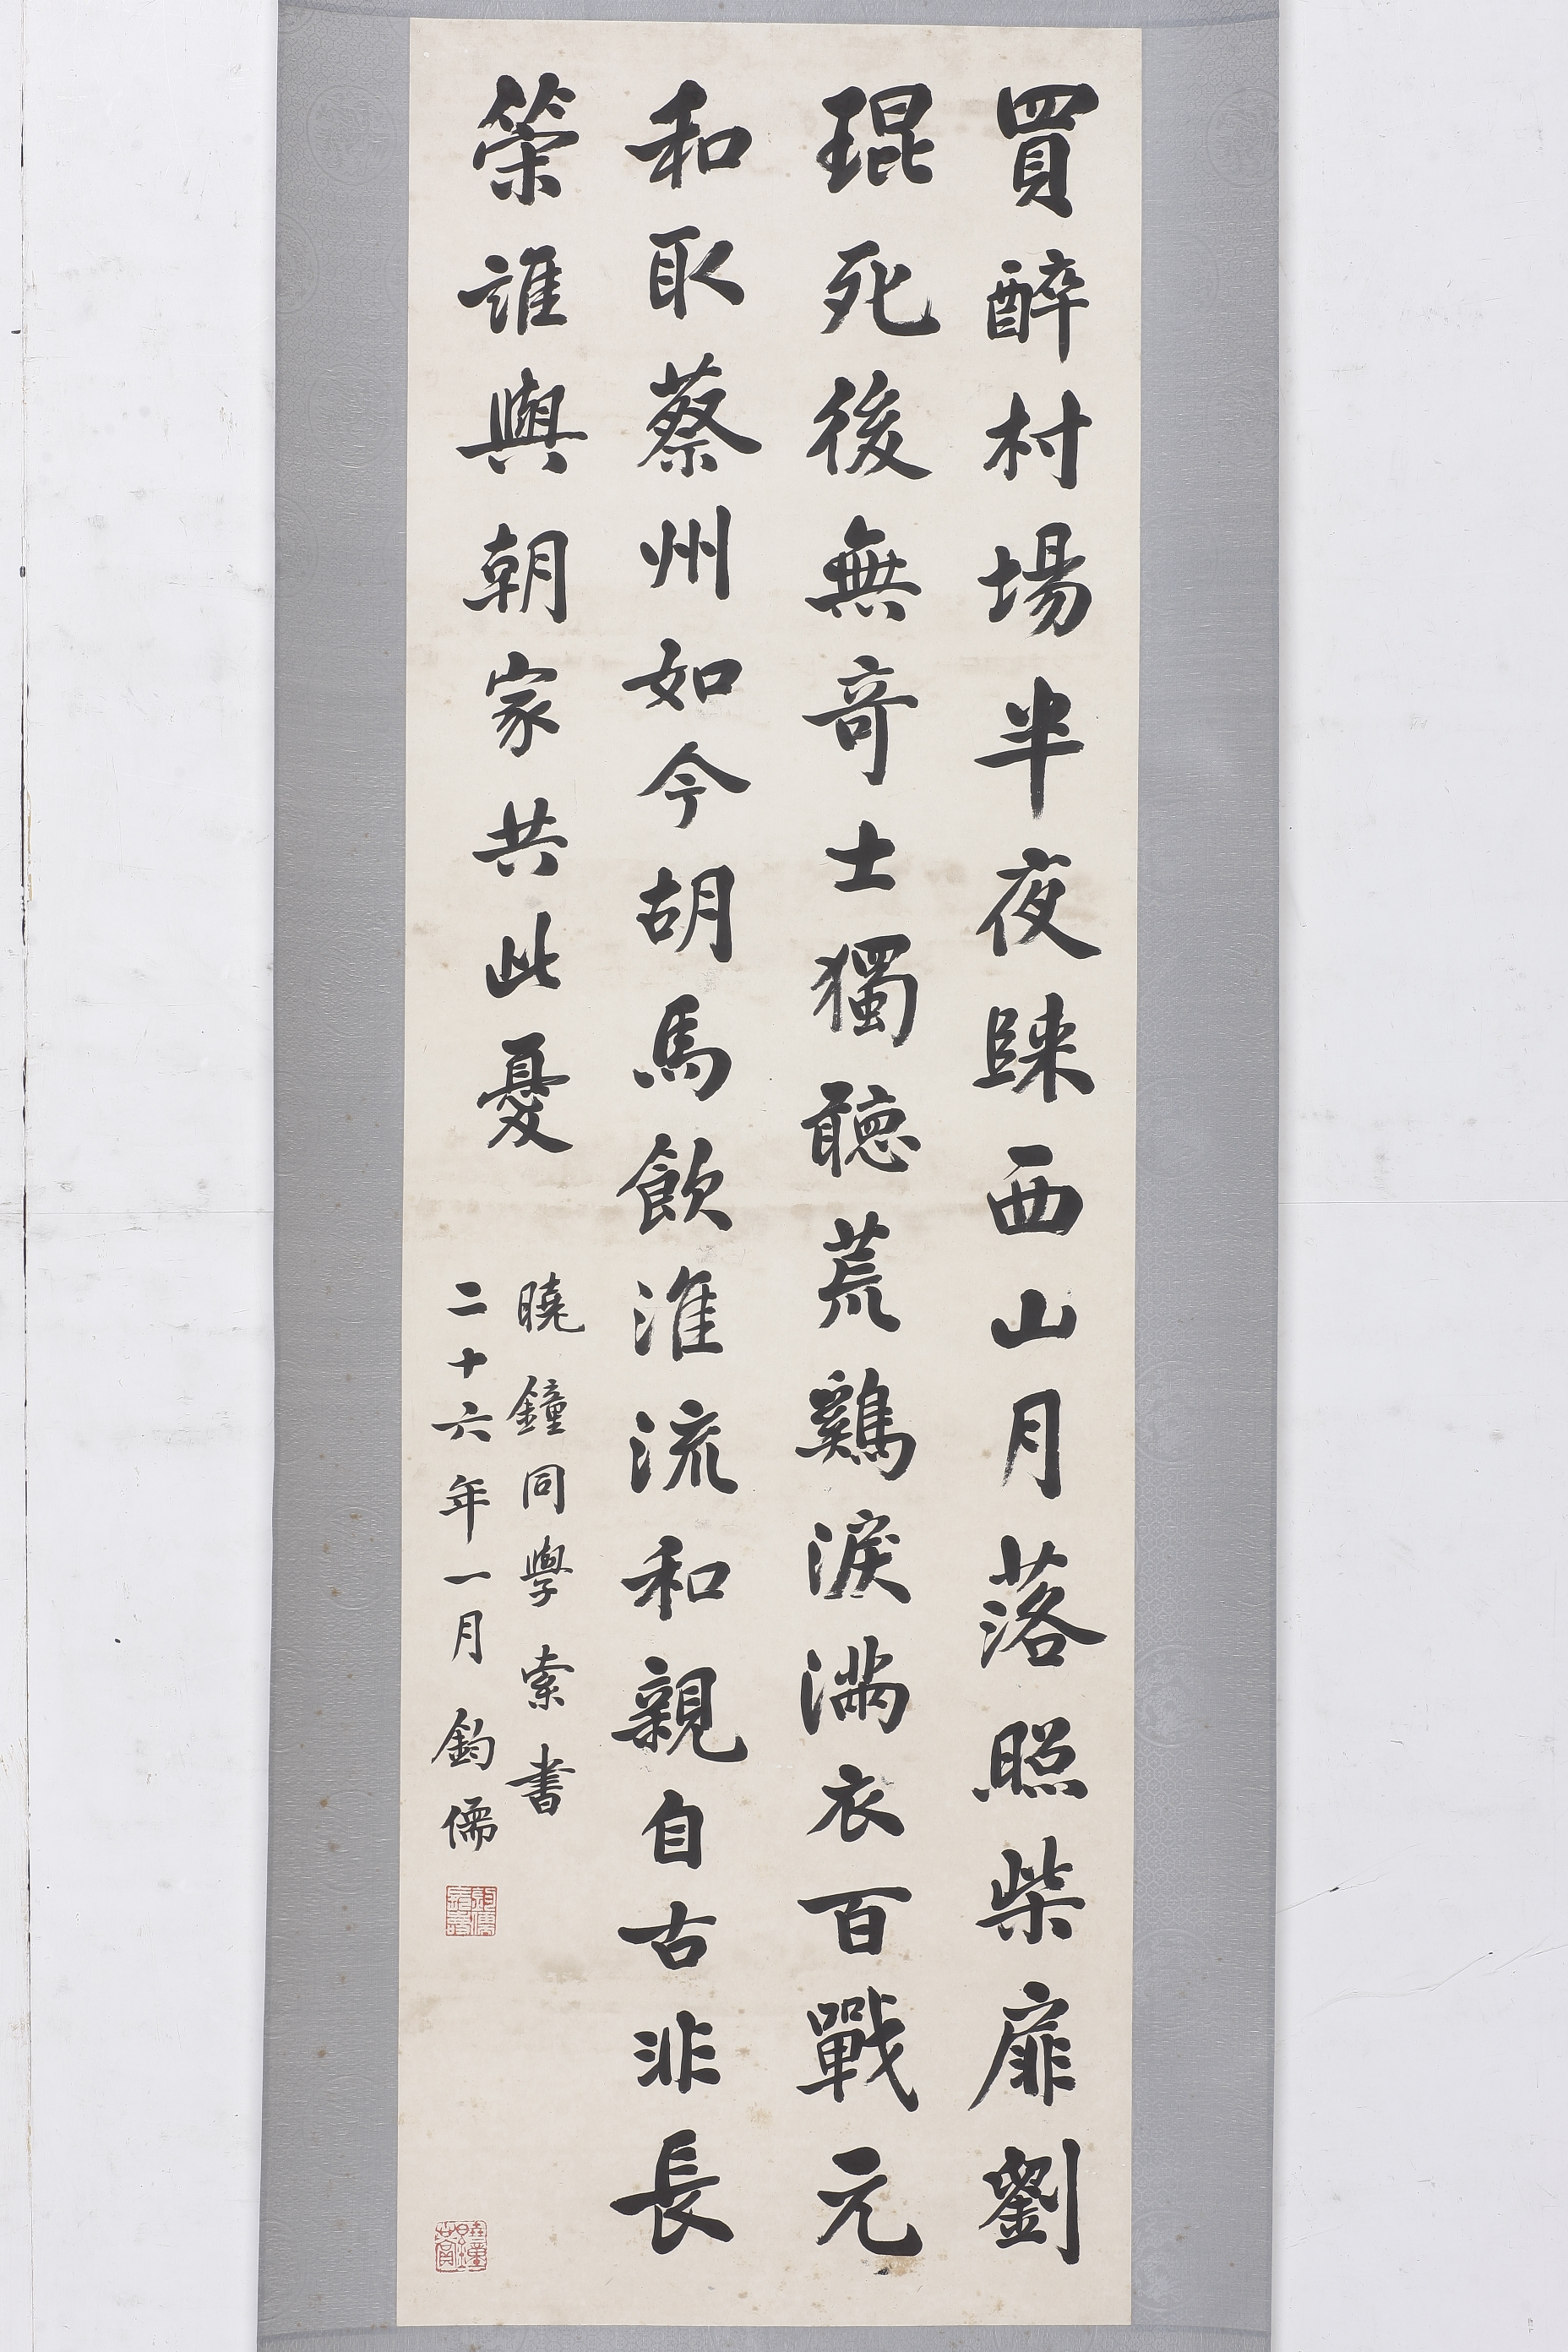 買醉村場半夜歸西山月落照柴扉劉
琨死後無奇士獨聽荒鷄淚滿衣百戰元
和取蔡州如今胡馬飲淮流和親自古非長
策誰與朝家共此憂
曉鐘同學索書
二十六年一月鈞儒